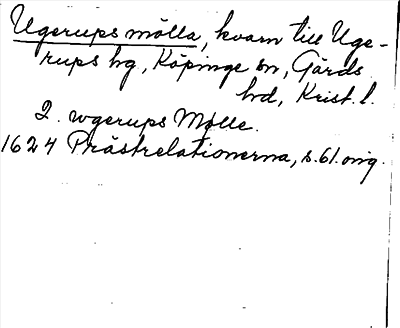 Ugerups mölla, kvarn till Uge-
rups hg, Köpinge sn, Gärds
hd, Krist. l.
2. wgerups Mølle.
1624 Prästrelationerna, s. 61. orig.